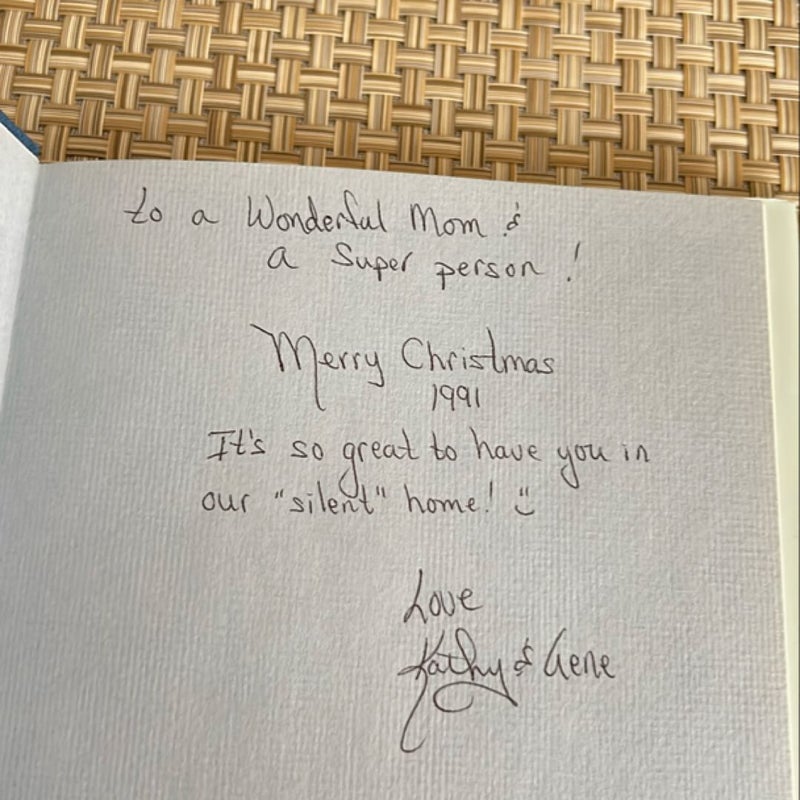 to a Wonderful Mom &
a Super person!
Merry Christmas
1991
It's so great to have you in
our "silent" home! ὠ2
Love
Kathy & Gene